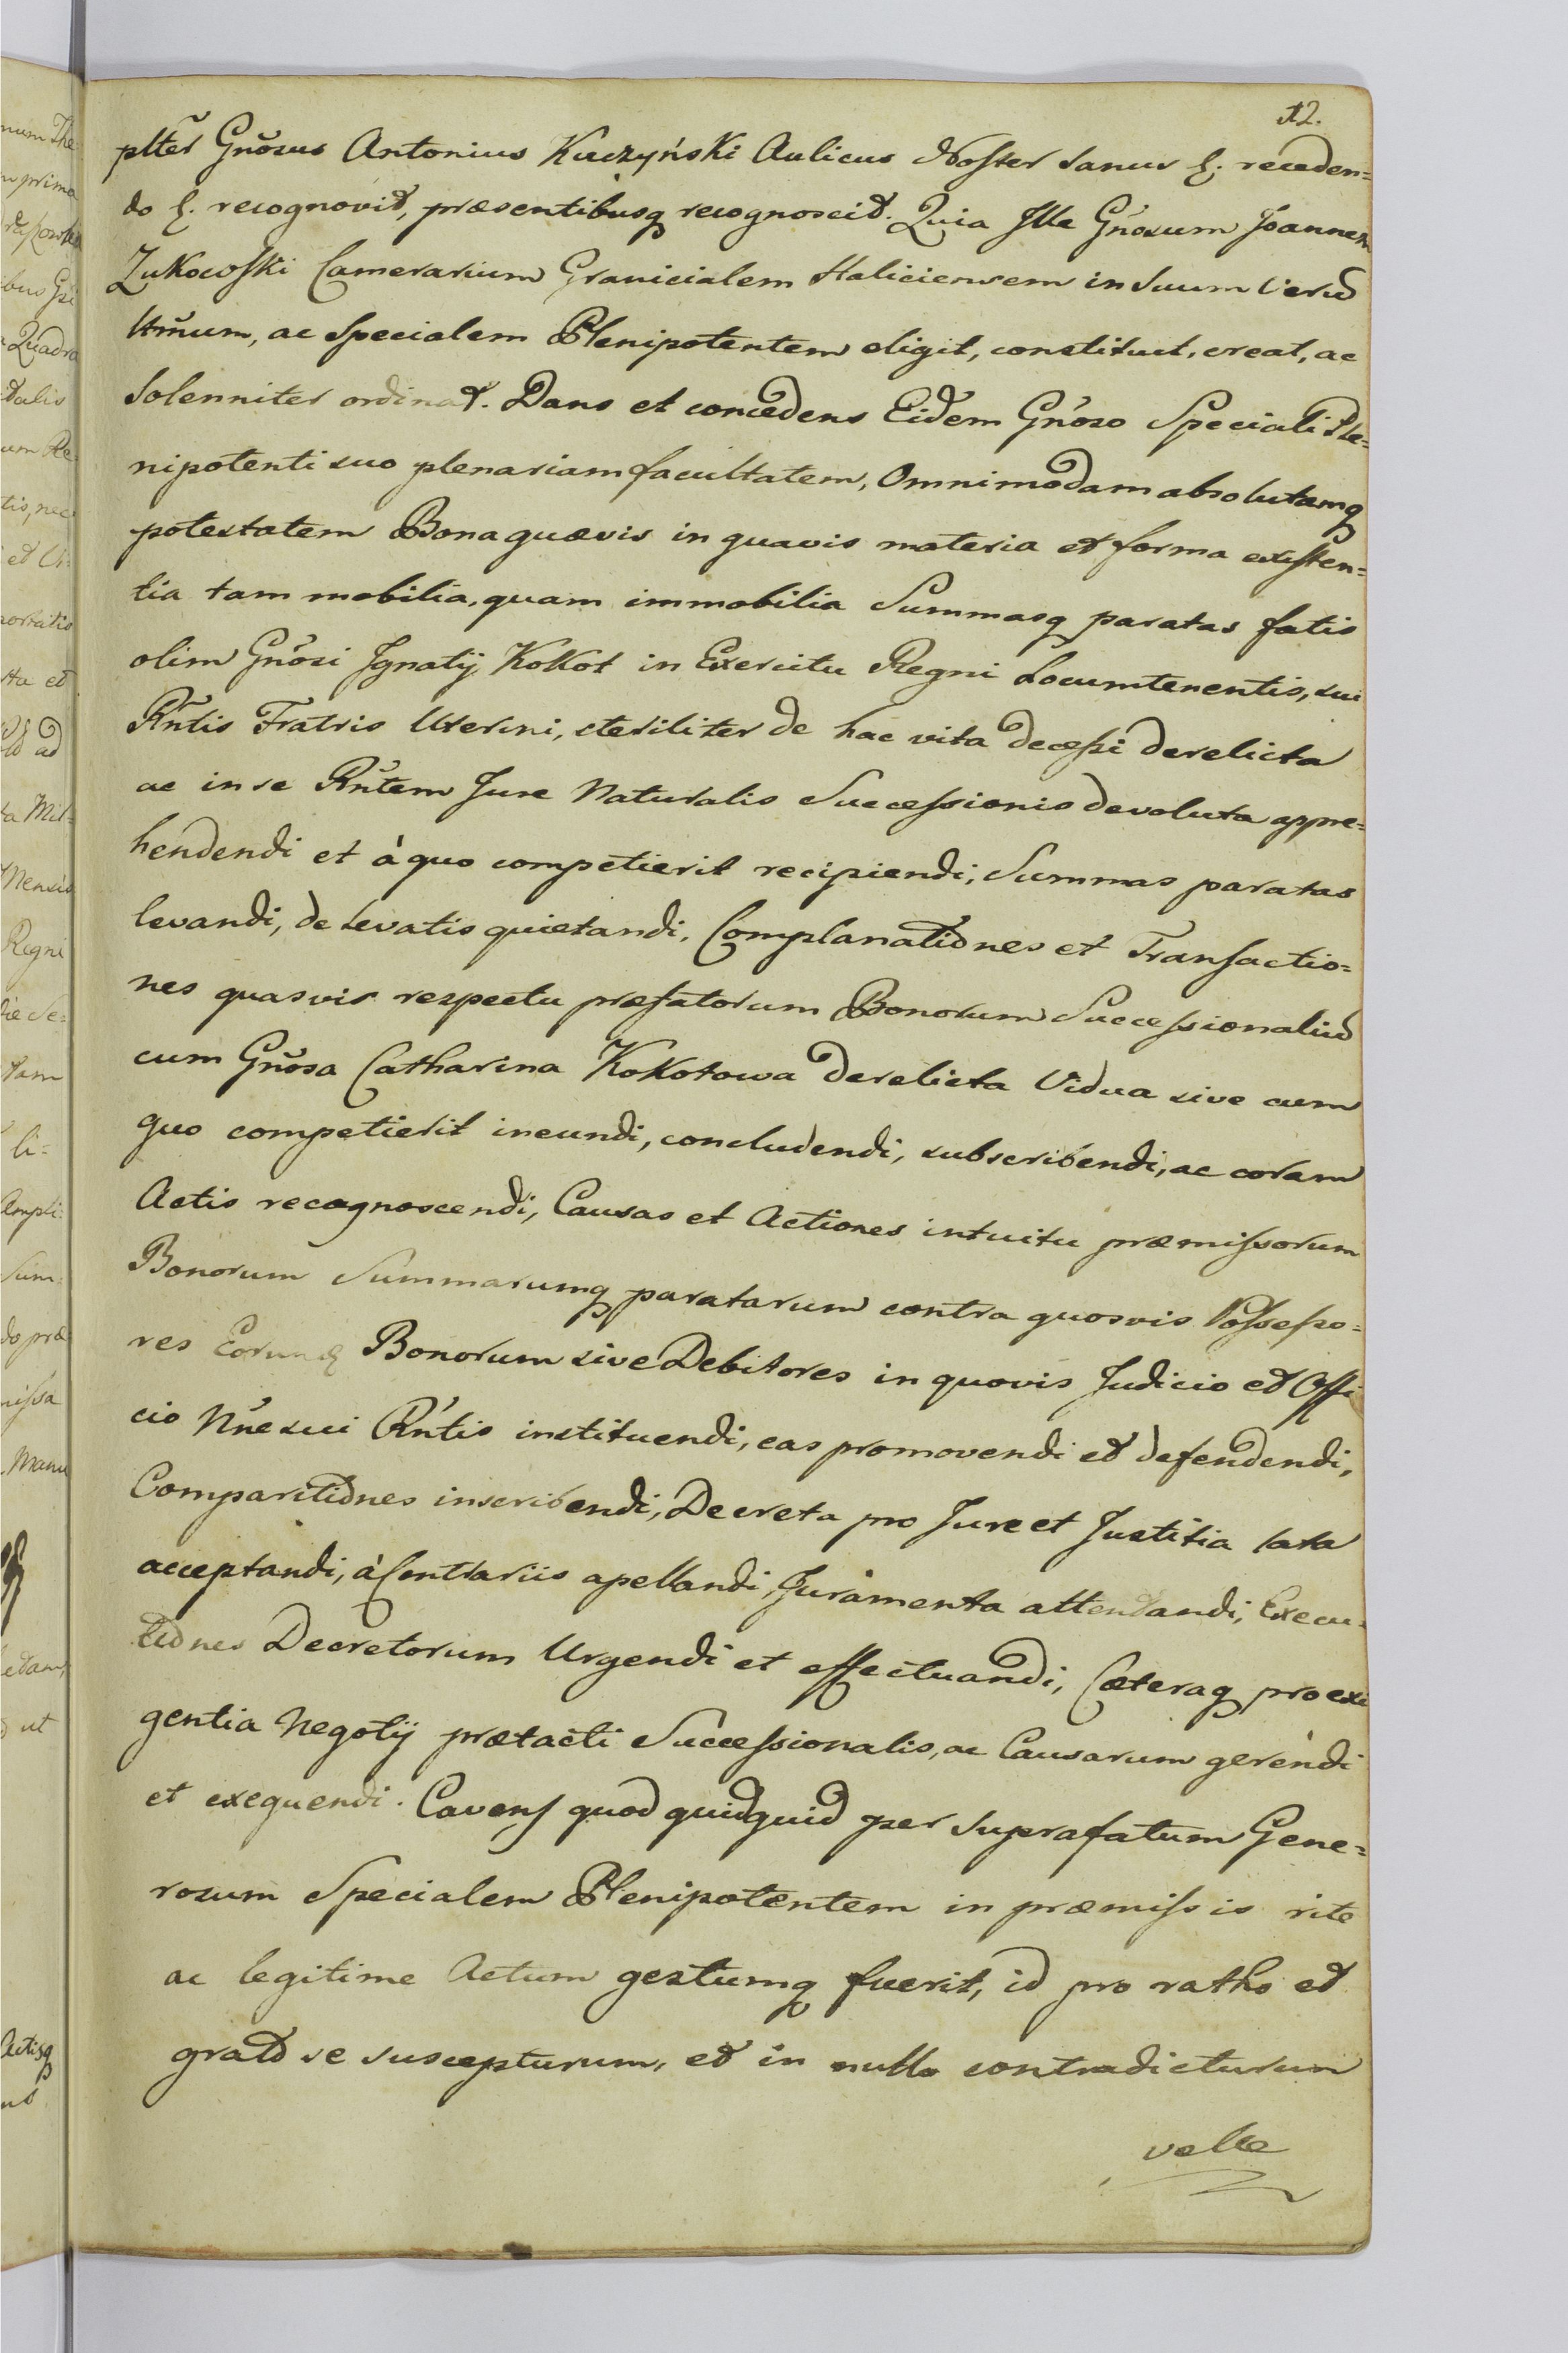 12.
pltēr Gnōsus Antonius Kuczyński Aulicus Noster sanus &. receden=
do &. recognovit, præsentibusq recognoscit. Quia Ille Gnosum Joannem
Zukowski Camerarium Granicialem Haliciensem in Suum Verū
Ltm̄um, ac Specialem Plenipotentem eligit, constituit, creat, ac
Solenniter ordinat. Dans et concedens Eidem Gnoso Speciali Ple=
nipotenti suo plenariam facultatem, Omnimodam absolutamq
potestatem Bona quævis in quavis materia et forma existen=
tia tam mobilia, quam immobilia Summasq paratas fatis
olim Gnosi Ignatij Kokot in Exercitu Regni Locumtenentis, sui
Rn̄tis Fratris Uterini, steriliter de hac vita decessi derelicta
ac in se Rn̄tem Jure Naturalis Successionis devoluta appre=
hendendi et à quo competierit recipiendi, Summas paratas
levandi, de levatis quietandi, Complanationes et Transactio=
nes quasvis respectu præfatorum Bonorum Successionaliū
cum Gnōsa Catharina Kokotowa derelicta Vidua sive cum
quo competierit ineundi, concludendi, subscribendi, ac coram
Actis recognoscendi, Causas et Actiones intuitu præmissorum
Bonorum Summarumq paratarum contra quosvis Possesso=
res Eorumq Bonorum sive Debitores in quovis Judicio et Offi
cio Nn̄e sui Rn̄tis instituendi, eas promovendi et defendendi,
Comparitiones inscribendi, Decreta pro Jure et Justitia lata
acceptandi, à Contrariis apellandi, Juramenta attendandi, Execu=
tiones Decretorum Urgendi et effectuandi, Cæteraq pro exi
gentia Negotij prætacti Successionalis, ac Causarum gerendi
et exequendi. Cavens quod quidquid per suprafatum Gene=
rosum Specialem Plenipotentem in præmissis rite
ac legitime Actum gestumq fuerit, id pro ratho et
grato se suscepturum, et in nullo contradicturum
velle